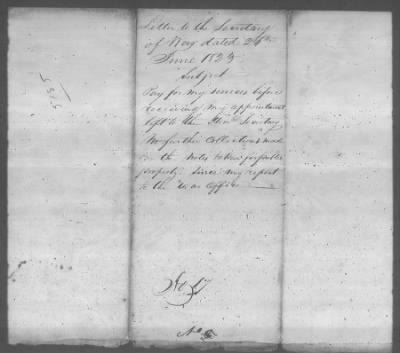 Letter to the Secretary
of War dated 26th
June 1823
Subject
Pay for my services before
receiving my appointment
left to the Honl Secretary
No further Collections made
on the Notes
property since my report
to the War Office
No 17
No